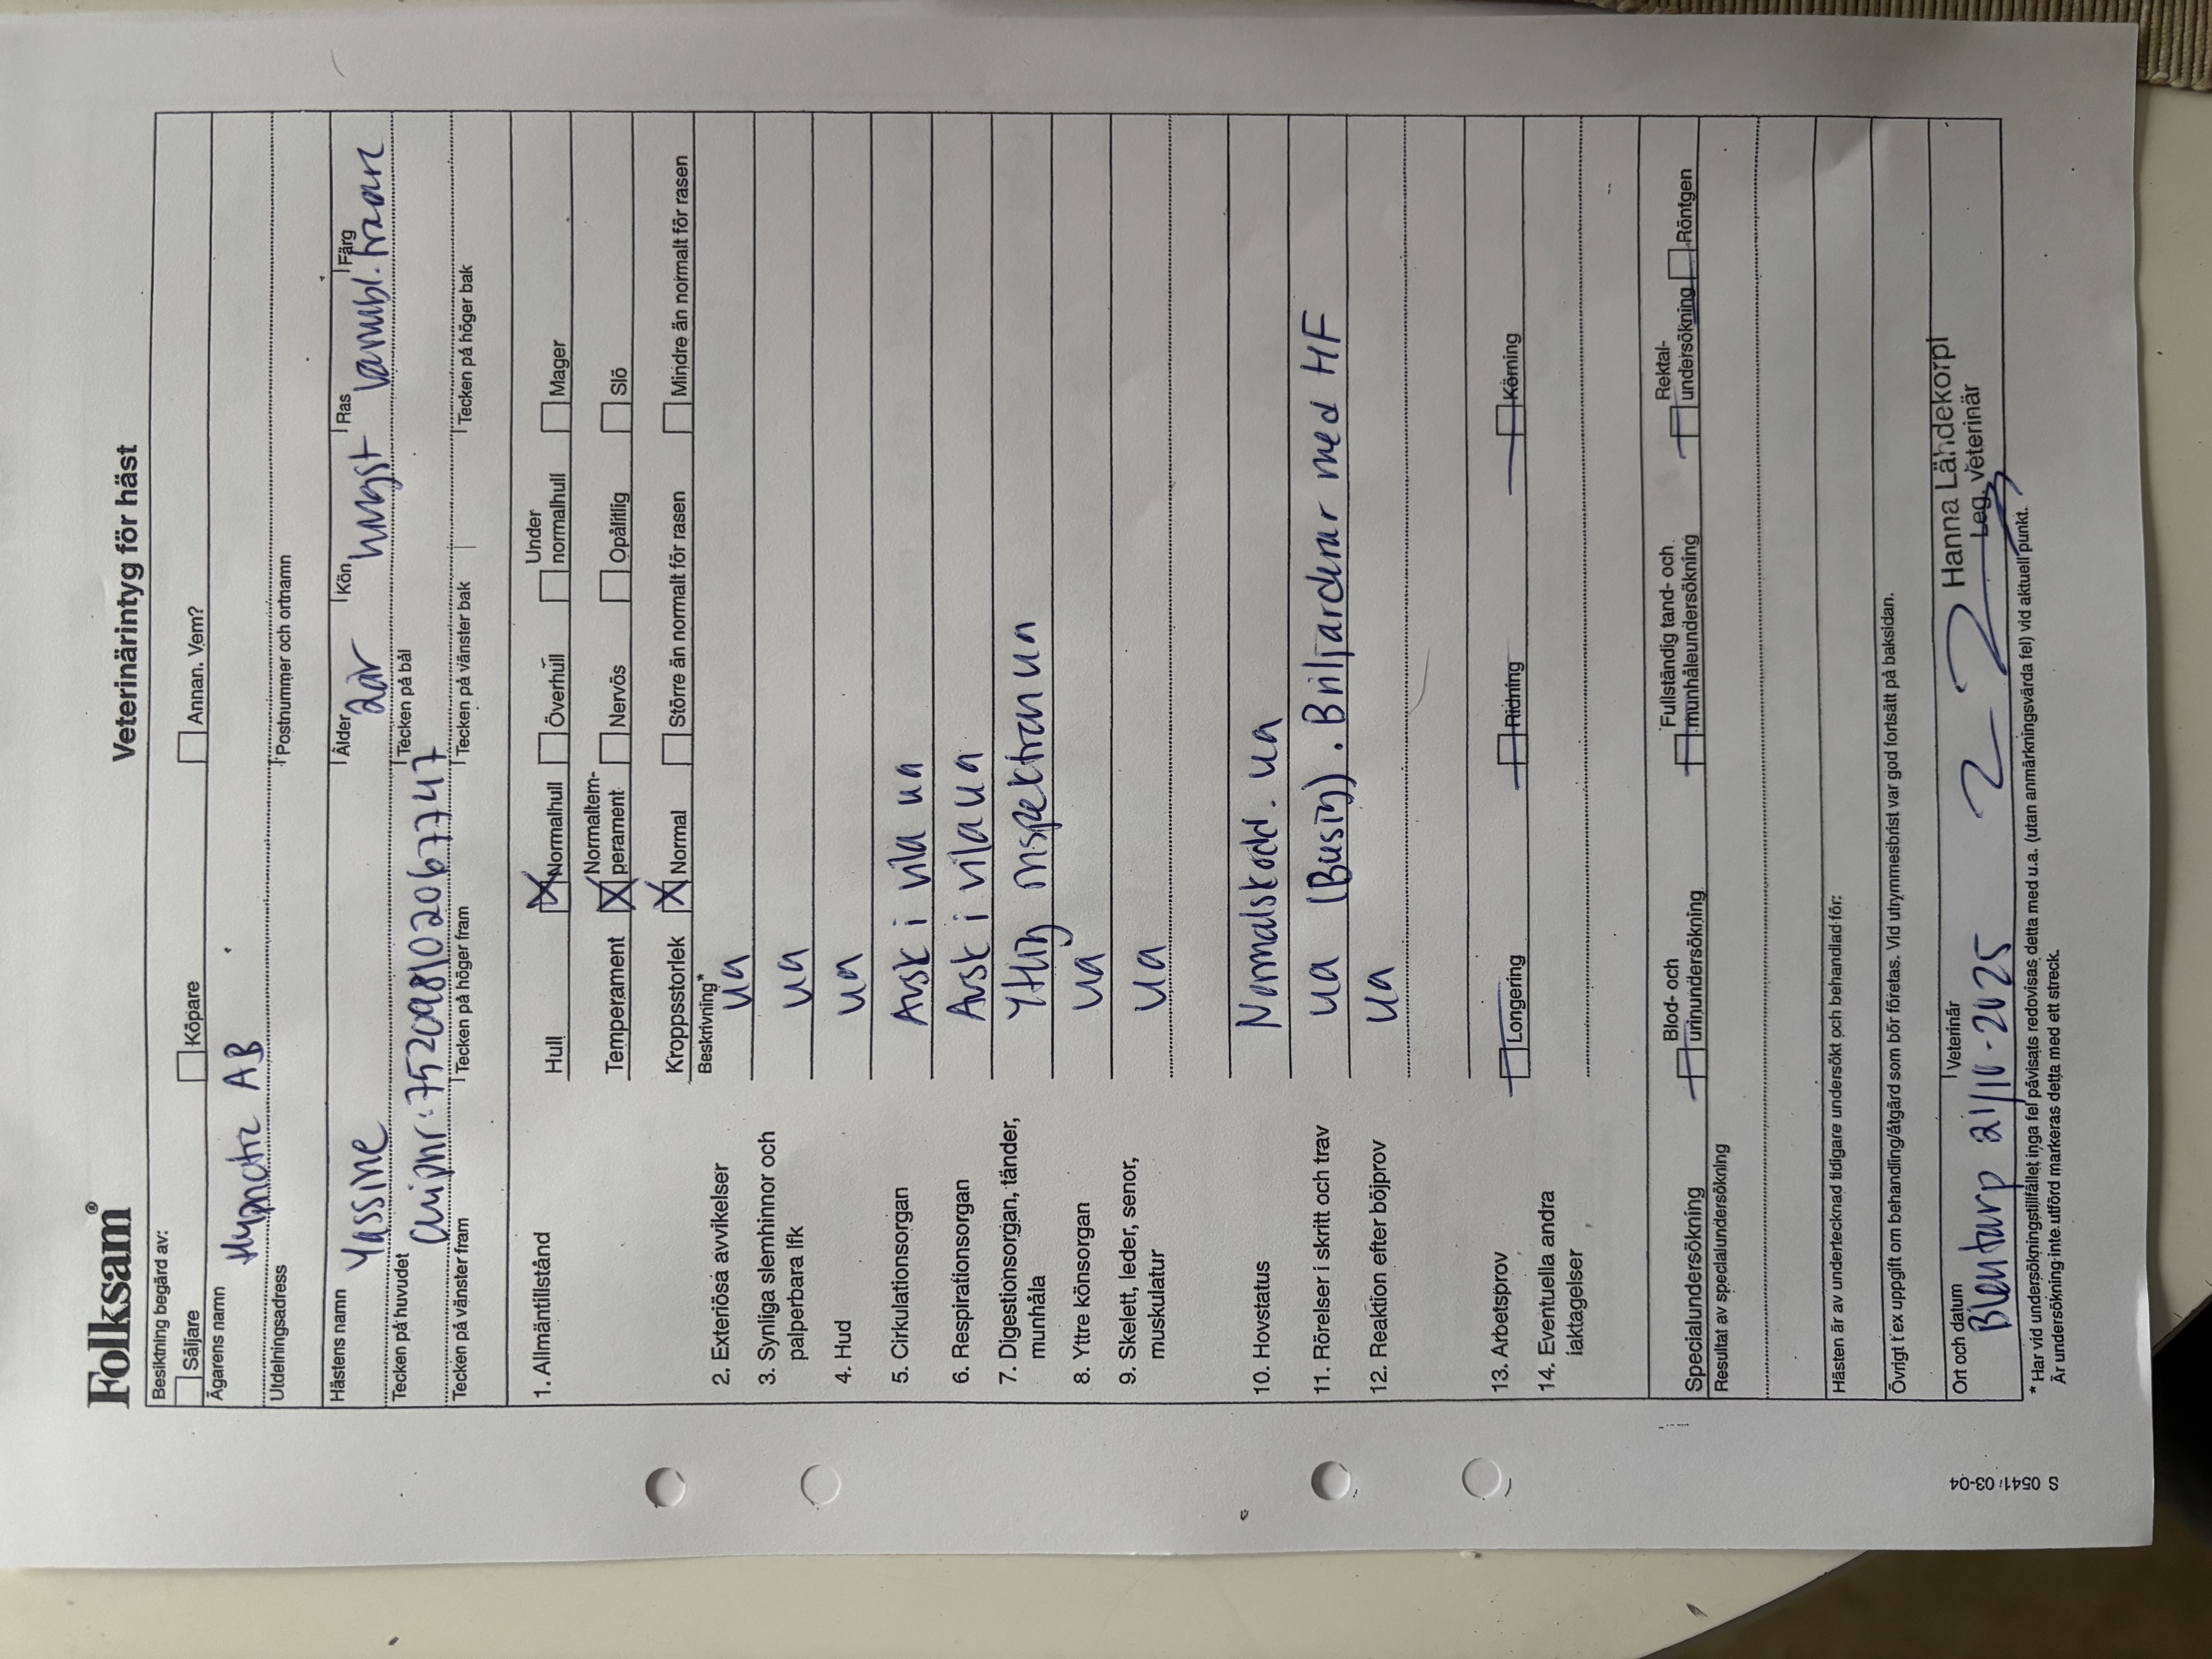 Folksam®
Veterinärintyg för häst
Besiktning begärd av:
Säljare Köpare Annan. Vem?
Ägarens namn
Hypnotic AB
Utdelningsadress Postnummer och ortnamn
Hästens namn Ålder Kön Ras Färg
Yassine 2år hingst varmbl. brun
Tecken på huvudet Tecken på bål
Chipnr: 752098102067747
Tecken på vänster fram Tecken på höger fram Tecken på vänster bak Tecken på höger bak
1. Allmäntillstånd Hull Normalhull Överhull Under normalhull Mager
Temperament Normaltemperament Nervös Opålitlig Slö
Kroppsstorlek Normal Större än normalt för rasen Mindre än normalt för rasen
Beskrivning*
2. Exteriösa avvikelser ua
3. Synliga slemhinnor och
palperbara lfk ua
4. Hud ua
5. Cirkulationsorgan Ausk i vila ua
6. Respirationsorgan Ausk i vila ua
7. Digestionsorgan, tänder,
munhåla Ytlig inspektion ua
8. Yttre könsorgan ua
9. Skelett, leder, senor,
muskulatur ua
10. Hovstatus Normalskodd. ua
11. Rörelser i skritt och trav ua (Busig). Briljarderar med HF
12. Reaktion efter böjprov ua
13. Arbetsprov Longering Ridning Körning
14. Eventuella andra
iakttagelser
Specialundersökning Blod- och urinundersökning Fullständig tand- och munhåleundersökning Rektalundersökning Röntgen
Resultat av specialundersökning
Hästen är av undertecknad tidigare undersökt och behandlad för:
Övrigt t ex uppgift om behandling/åtgärd som bör företas. Vid utrymmesbrist var god fortsätt på baksidan.
Ort och datum Veterinär
Blentarp 21/10-2025 Hanna Lähdekorpi
Leg. Veterinär
* Har vid undersökningstillfället inga fel påvisats redovisas detta med u.a. (utan anmärkningsvärda fel) vid aktuell punkt.
Är undersökning inte utförd markeras detta med ett streck.
S 0541 03-04